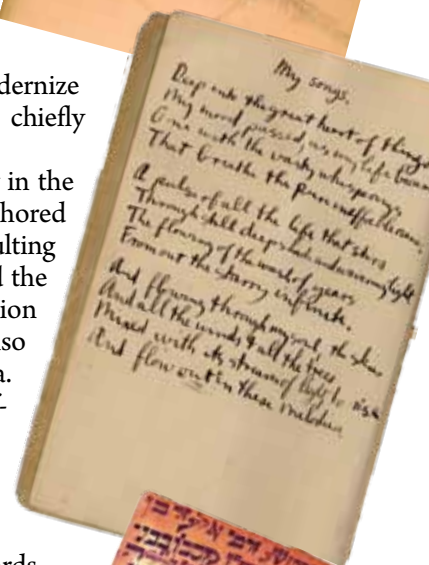 dernize
chiefly
in the
hored
ulting
d the
ion
so
a.
My songs.
Deep into the great heart of things
My mood passed, as my life became
One with the vasty whisperings
That breathe the pure ineffable name.
A pulse of all the life that stirs
Through still deep shade and wavering light
The flowing of the wash of years
From out the starry infinite.
And flowing through my soul the skies
And all the winds & all the trees
Mixed with its stream of light to rise
And flow out in these melodies
rds